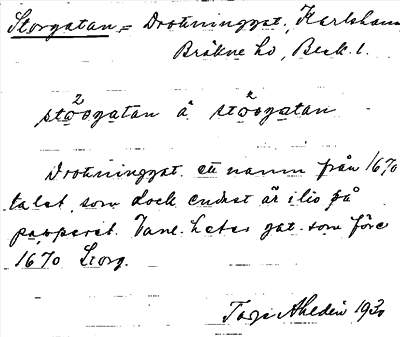 Storgatan = Drottninggat., Karlshamn
Bräkne hd, Blek. l.
stòogatan å stòogatan
Drottninggat. ett namn från 1670
talet, som dock endast är i liv på
papperet. Vanl. heter gat. som före
1670 Storg.
Tage Ahldén 1930